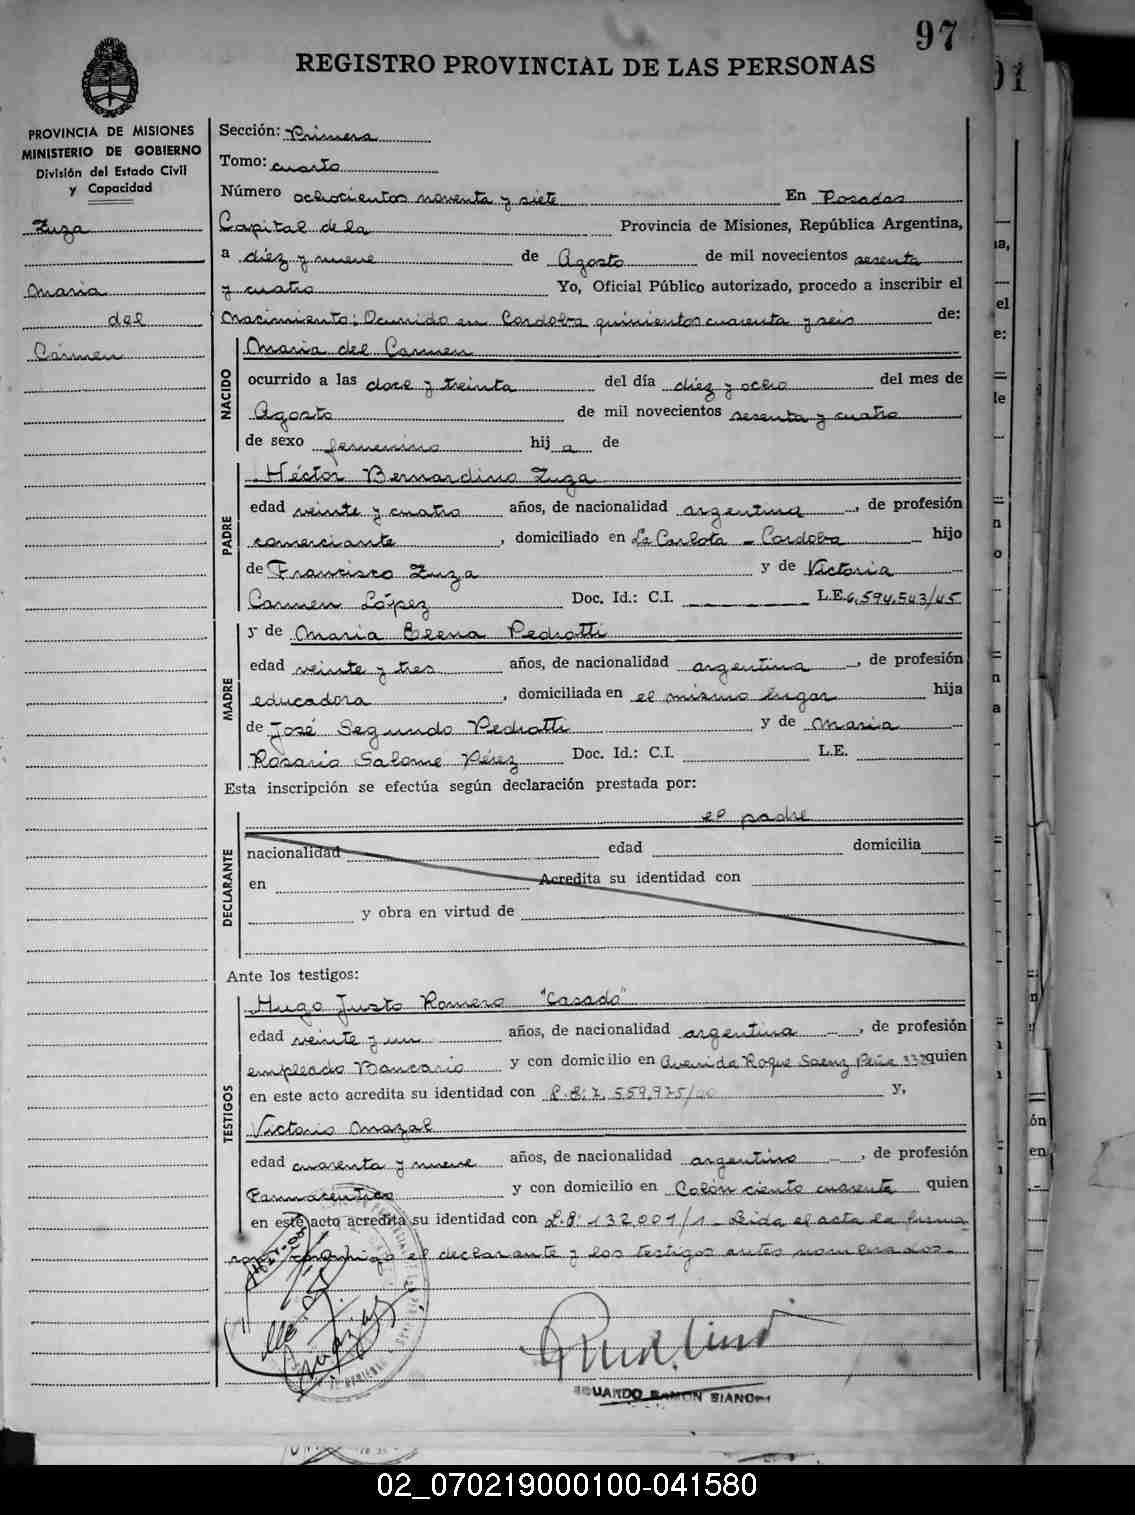 97
REGISTRO PROVINCIAL DE LAS PERSONAS
PROVINCIA DE MISIONES
MINISTERIO DE GOBIERNO
División del Estado Civil
y Capacidad
Zuza
Maria
del
Carmen
Sección: Primera
Tomo: cuarto
Número ochocientos noventa y siete En Posadas
Capital de la Provincia de Misiones, República Argentina,
a diez y nueve de Agosto de mil novecientos sesenta
y cuatro Yo, Oficial Público autorizado, procedo a inscribir el
Nacimiento; Ocurrido en Cordoba quinientos cuarenta y seis de:
NACIDO
Maria del Carmen
ocurrido a las doce y treinta del día diez y ocho del mes de
Agosto de mil novecientos sesenta y cuatro
de sexo femenino hij a de
PADRE
Héctor Bernardino Zuza
edad veinte y cuatro años, de nacionalidad argentina, de profesión
comerciante, domiciliado en La Carlota - Cordoba hijo
de Francisco Zuza y de Victoria
Carmen López Doc. Id.: C.I. L.E. 6,594,543/45
MADRE
y de Maria Elena Pedrotti
edad veinte y tres años, de nacionalidad argentina, de profesión
educadora, domiciliada en el mismo lugar hija
de José Segundo Pedrotti y de Maria
Rosario Salome Pérez Doc. Id.: C.I. L.E.
Esta inscripción se efectúa según declaración prestada por:
el padre
DECLARANTE
nacionalidad edad domicilia
en Acredita su identidad con
y obra en virtud de
Ante los testigos:
TESTIGOS
Hugo Justo Romero "Casado"
edad veinte y un años, de nacionalidad argentina, de profesión
empleado Bancario y con domicilio en Avenida Roque Saenz Peña quien
en este acto acredita su identidad con 7,559,975/ y,
Victorio Mazal
edad cuarenta y nueve años, de nacionalidad argentino, de profesión
Farmacéutico y con domicilio en Colón ciento cuarenta quien
en este acto acredita su identidad con 132,001/1 - Leida el acta la firma
conmigo el declarante y los testigos antes nombrados.
EDUARDO RAMON
02_070219000100-041580